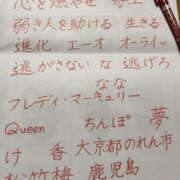 心を燃やせ
弱き人を助ける 生きる
進化 エーオ オーライッ
逃がさない な 逃げろ
なな
フレディ・マーキュリー
Queen ちんぽ 夢
け 香 大京都のれん市
松竹梅 鹿児島